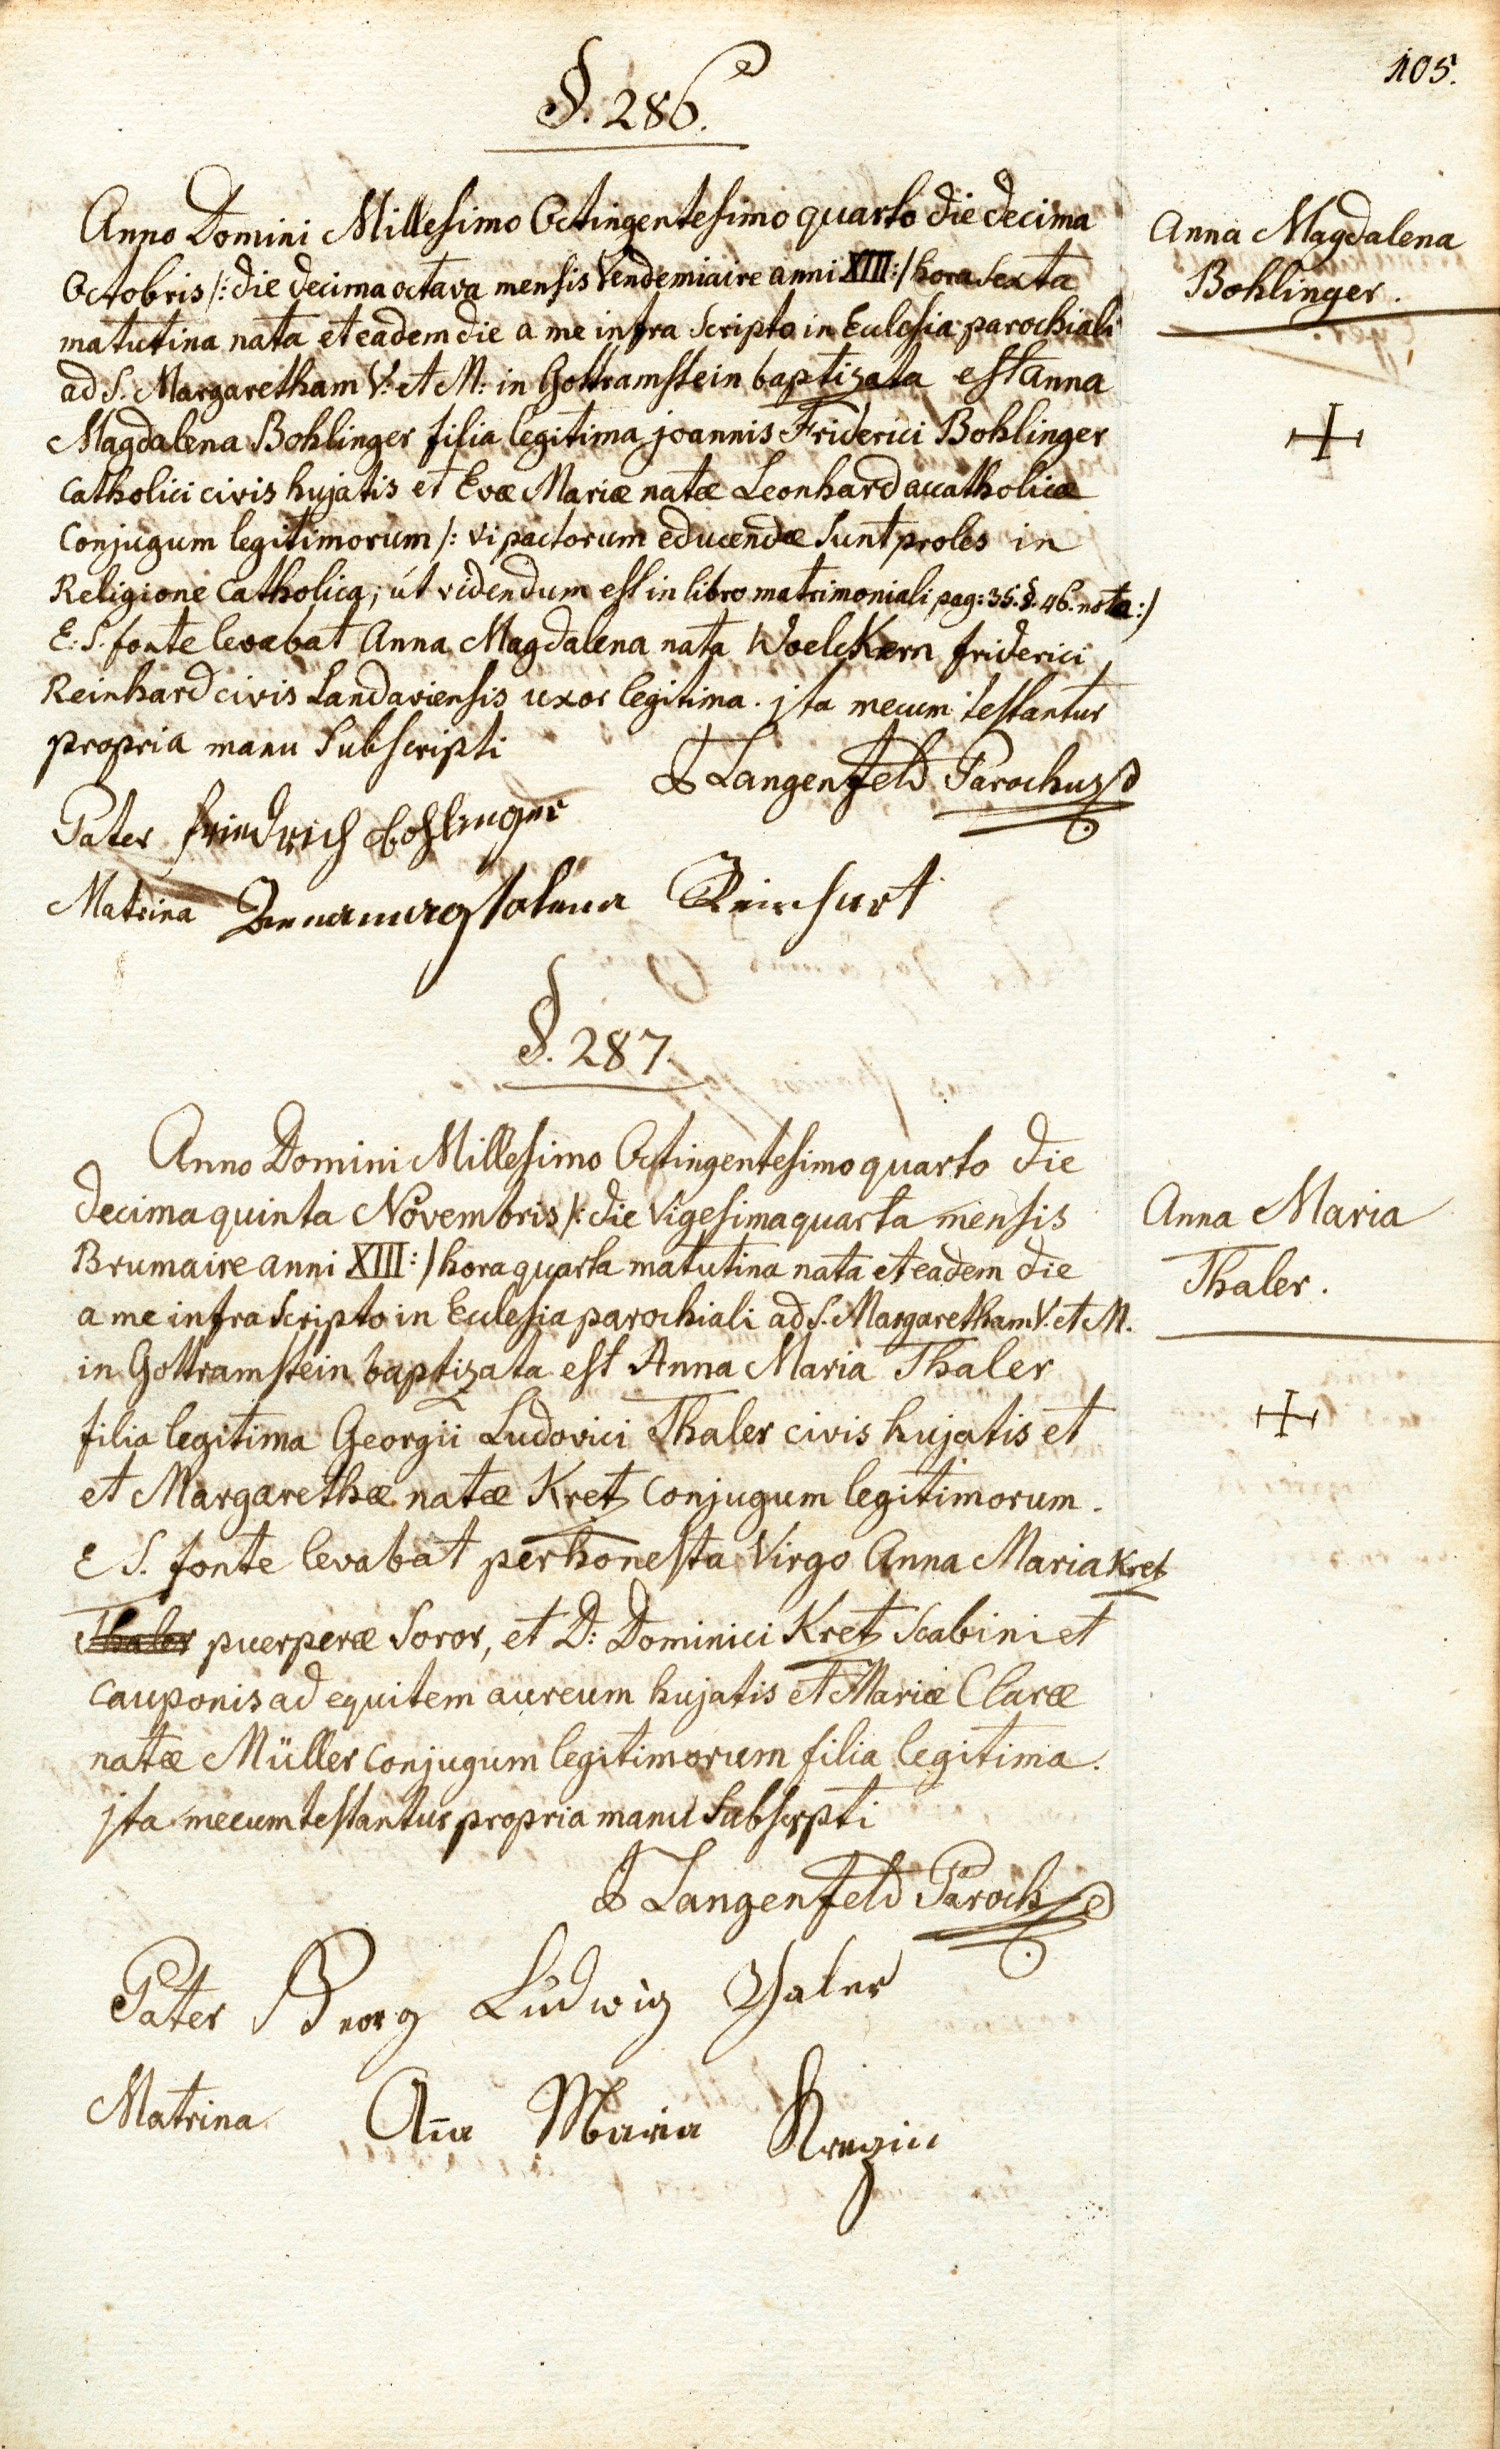 105.
§. 286.
Anna Magdalena
Bohlinger.
Anno Domini Millesimo Octingentesimo quarto die decima
Octobris /: die decima octava mensis Vendemiaire anni XIII :/ hora sexta
matutina nata et eadem die a me infra scripto in Ecclesia parochiali
ad S. Margaretham V: et M: in Gottramstein baptizata est Anna
Magdalena Bohlinger filia legitima joannis Friderici Bohlinger
Catholici civis hujatis et Evæ Mariæ natæ Leonhard accatholicæ
Conjugum legitimorum /: vi pactorum educendæ sunt proles in
Religione Catholica, út videndum est in libro matrimoniali pag: 35. §. 46. nota :/
E. S. fonte levabat Anna Magdalena nata Woelckern friderici
Reinhard civis Landaviensis uxor legitima. jta mecum testantur
propria manu subscripti
Langenfeld Parochus
Pater Friedrich Bohlinger
Matrina Annamagdalena Reinhart
§. 287.
Anna Maria
Thaler.
Anno Domini Millesimo Octingentesimo quarto die
decima quinta Novembris /: die vigesima quarta mensis
Brumaire anni XIII :/ hora quarta matutina nata et eadem die
a me infra scripto in Ecclesia parochiali ad S. Margaretham V. et M.
in Gottramstein baptizata est Anna Maria Thaler
filia legitima Georgii Ludovici Thaler civis hujatis et
et Margarethæ natæ Kretz Conjugum legitimorum.
E S. fonte levabat perhonesta Virgo Anna Maria Kretz
Thaler puerperæ soror, et D: Dominici Kretz Scabini et
Cauponis ad equitem aureum hujatis et Mariæ Claræ
natæ Müller Conjugum legitimorum filia legitima.
jta mecum testantur propria manu subscrpti
Langenfeld Paroch
Pater Georg Ludwig Thaler
Matrina Aña Maria Krezin